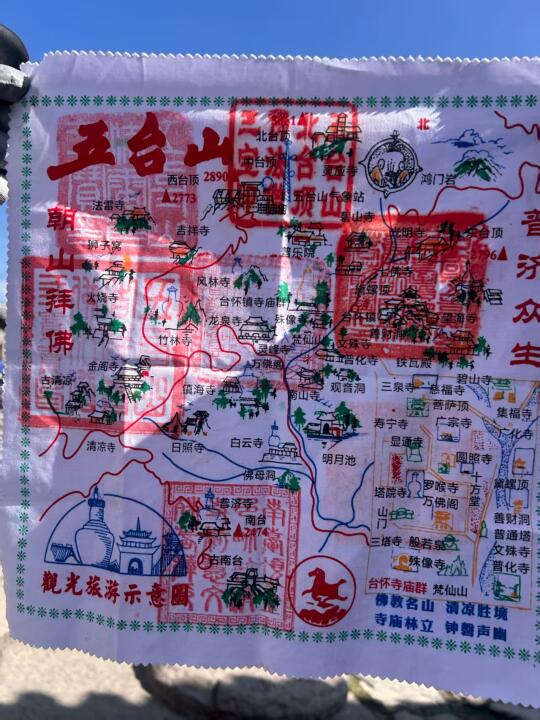 五台山
朝山拜佛
普济众生
北
北台顶
中台顶
2890
灵应寺
西台顶
▲2773
鸿门岩
法雷寺
五台山气象站
碧山寺
吉祥寺
光明寺
东台顶
狮子窝
七佛寺
风林寺
黛螺顶
火烧寺
台怀镇寺庙群
龙泉寺
殊像寺
台怀镇
望海寺
善财洞
竹林寺
梵仙山
文殊寺
灵峰寺
普化寺
万佛阁
铁瓦殿
金阁寺
古清凉
镇海寺
南山寺
观音洞
清凉寺
日照寺
白云寺
明月池
佛母洞
普济寺
南台
▲2474
古南台
碧山寺
三泉寺
慈福寺
菩萨顶
集福寺
寿宁寺
广宗寺
显通寺
圆照寺
塔院寺
罗睺寺
十方堂
黛螺顶
万佛阁
山门
善财洞
普通塔
三塔寺
般若泉
文殊寺
殊像寺
普化寺
台怀寺庙群
梵仙山
觀光旅游示意圖
佛教名山 清凉胜境
寺庙林立 钟磬声幽